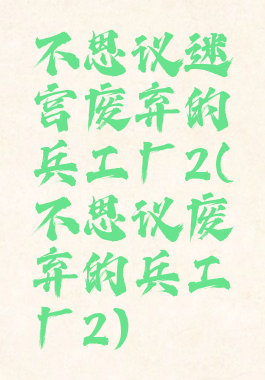 不思议迷
宫废弃的
兵工厂2(
不思议废
弃的兵工
厂2)